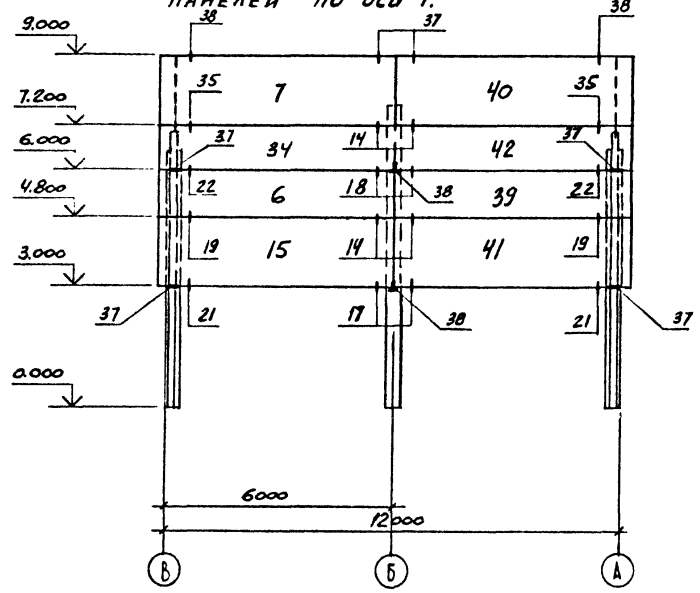 ПАНЕЛЕЙ ПО ОСИ 1.
38 37 38
9.000
7 40
35 35
7.200
37 34 14 42 37
6.000
22 6 18 38 39 22
4.800
19 15 14 41 19
3.000
37 21 17 38 21 37
0.000
6000
12000
В Б А